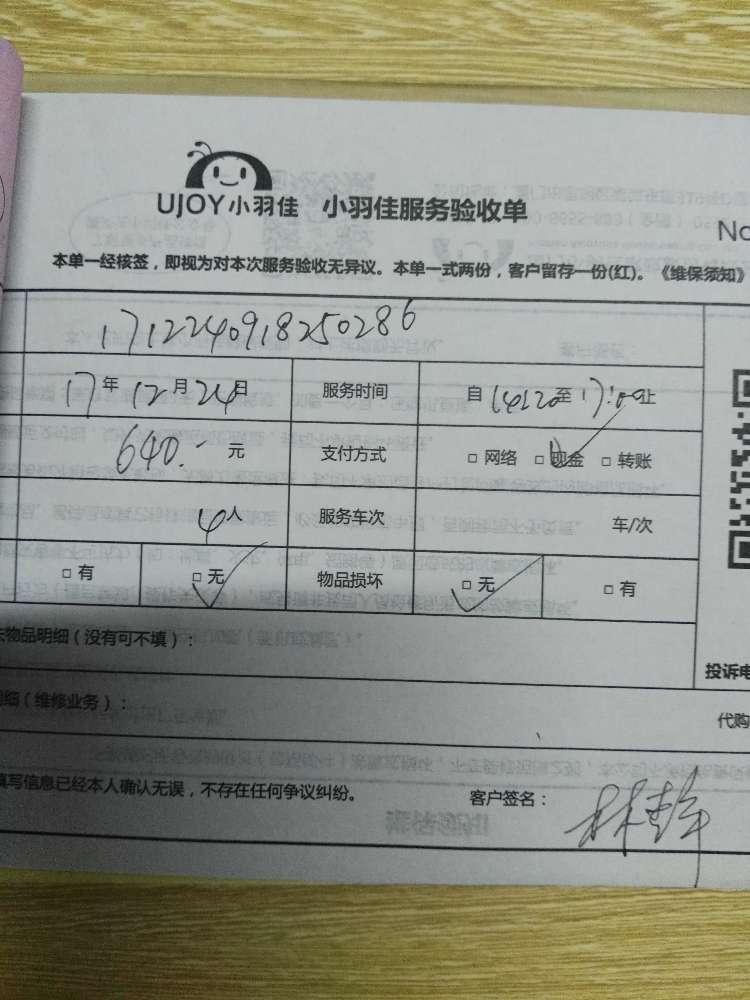 UJOY小羽佳 小羽佳服务验收单
No
本单一经核签，即视为对本次服务验收无异议。本单一式两份，客户留存一份(红)。《维保须知》
1712240918250286
17年12月24日 服务时间 自14:20至17:00止
640.- 元 支付方式 □ 网络 □ 现金 □ 转账
4人 服务车次 车/次
□ 有 □ 无 物品损坏 □ 无 □ 有
物品明细（没有可不填）：
投诉电
细（维修业务）：
代购
填写信息已经本人确认无误，不存在任何争议纠纷。 客户签名：